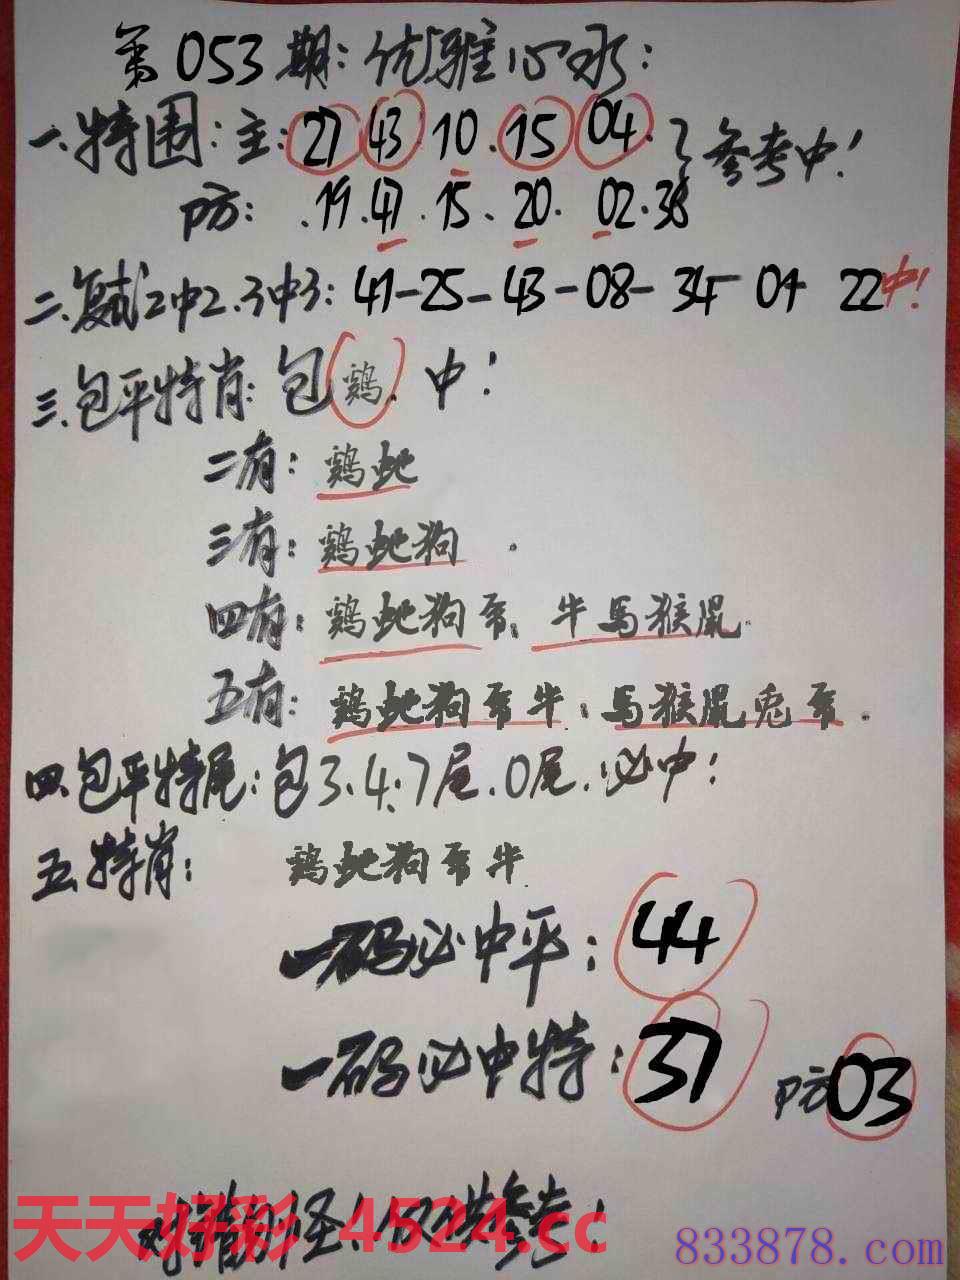 第053期:优雅心水:
一.特围:主:27 43.10.15 04.}参考中!
防:.19.47.15.20.02.38
二.复式2中2.3中3:47-25-43-08-34-01 22中!
三.包平特肖:包鷄.中!
二有:鷄虵
三有:鷄虵狗.
四有:鷄虵狗 牛馬猴鼠.
五有:鷄虵狗 牛:馬猴鼠兎
四.包平特尾:包3.4.7尾.0尾.必中!
五.特肖:鷄虵狗 牛
一码必中平:44
一码必中特:37 防03
对错勿怪!仅供参考!
天天好彩 4524.cc
833878.com